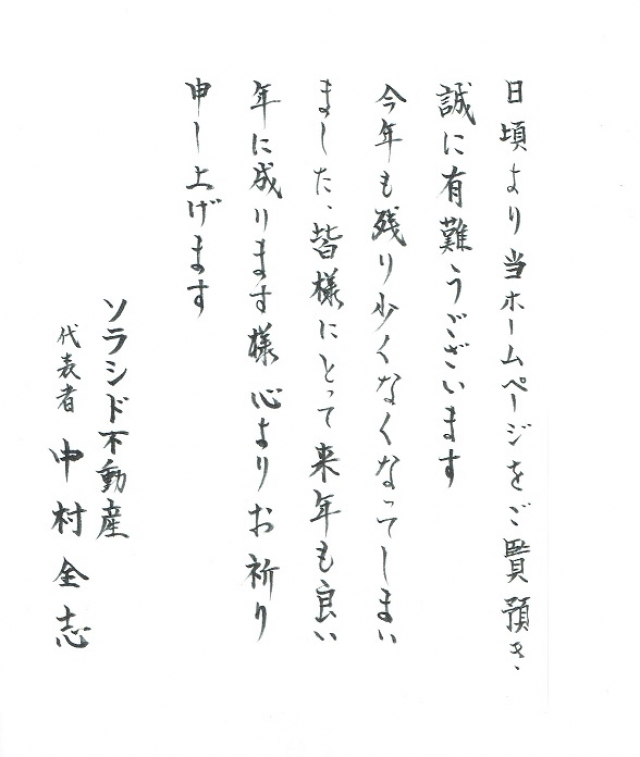 日頃より当ホームページをご賢預き、
誠に有難うございます
今年も残り少くなくなってしまい
ました、皆様にとって来年も良い
年に成ります様心よりお祈り
申し上げます
ソラシド不動産
代表者 中村全志